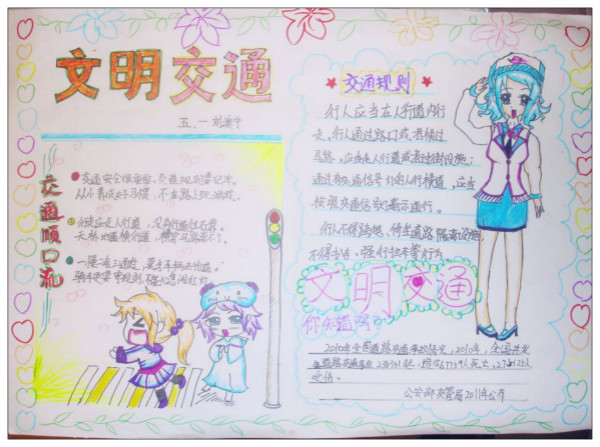 文明交通
五.一 刘
交通顺口流
交通安全很重要,交通规则要记牢。
从小养成好习惯,不在路上玩游戏。
行走应走人行道,没有行道往右靠。
天桥地道横行道,横穿马路
一慢二看三通过,莫与车辆去抢道。
骑车更要守规则,不
交通规则
行人应当在人行道内行
走,行人通过路口或者横过
马路,应当走人行道或者过街设施;
通过有交通信号灯的人行横道,应当
按照交通信号灯指示通行。
行人不得跨越、倚坐道路隔离设施,
不得扒车、强行拦车等行为
文明交通
你知道吗?
2010年全国道路交通事故 2010年,全国共发
生道路交通事故
之伤。
公安部交管局2011年公布